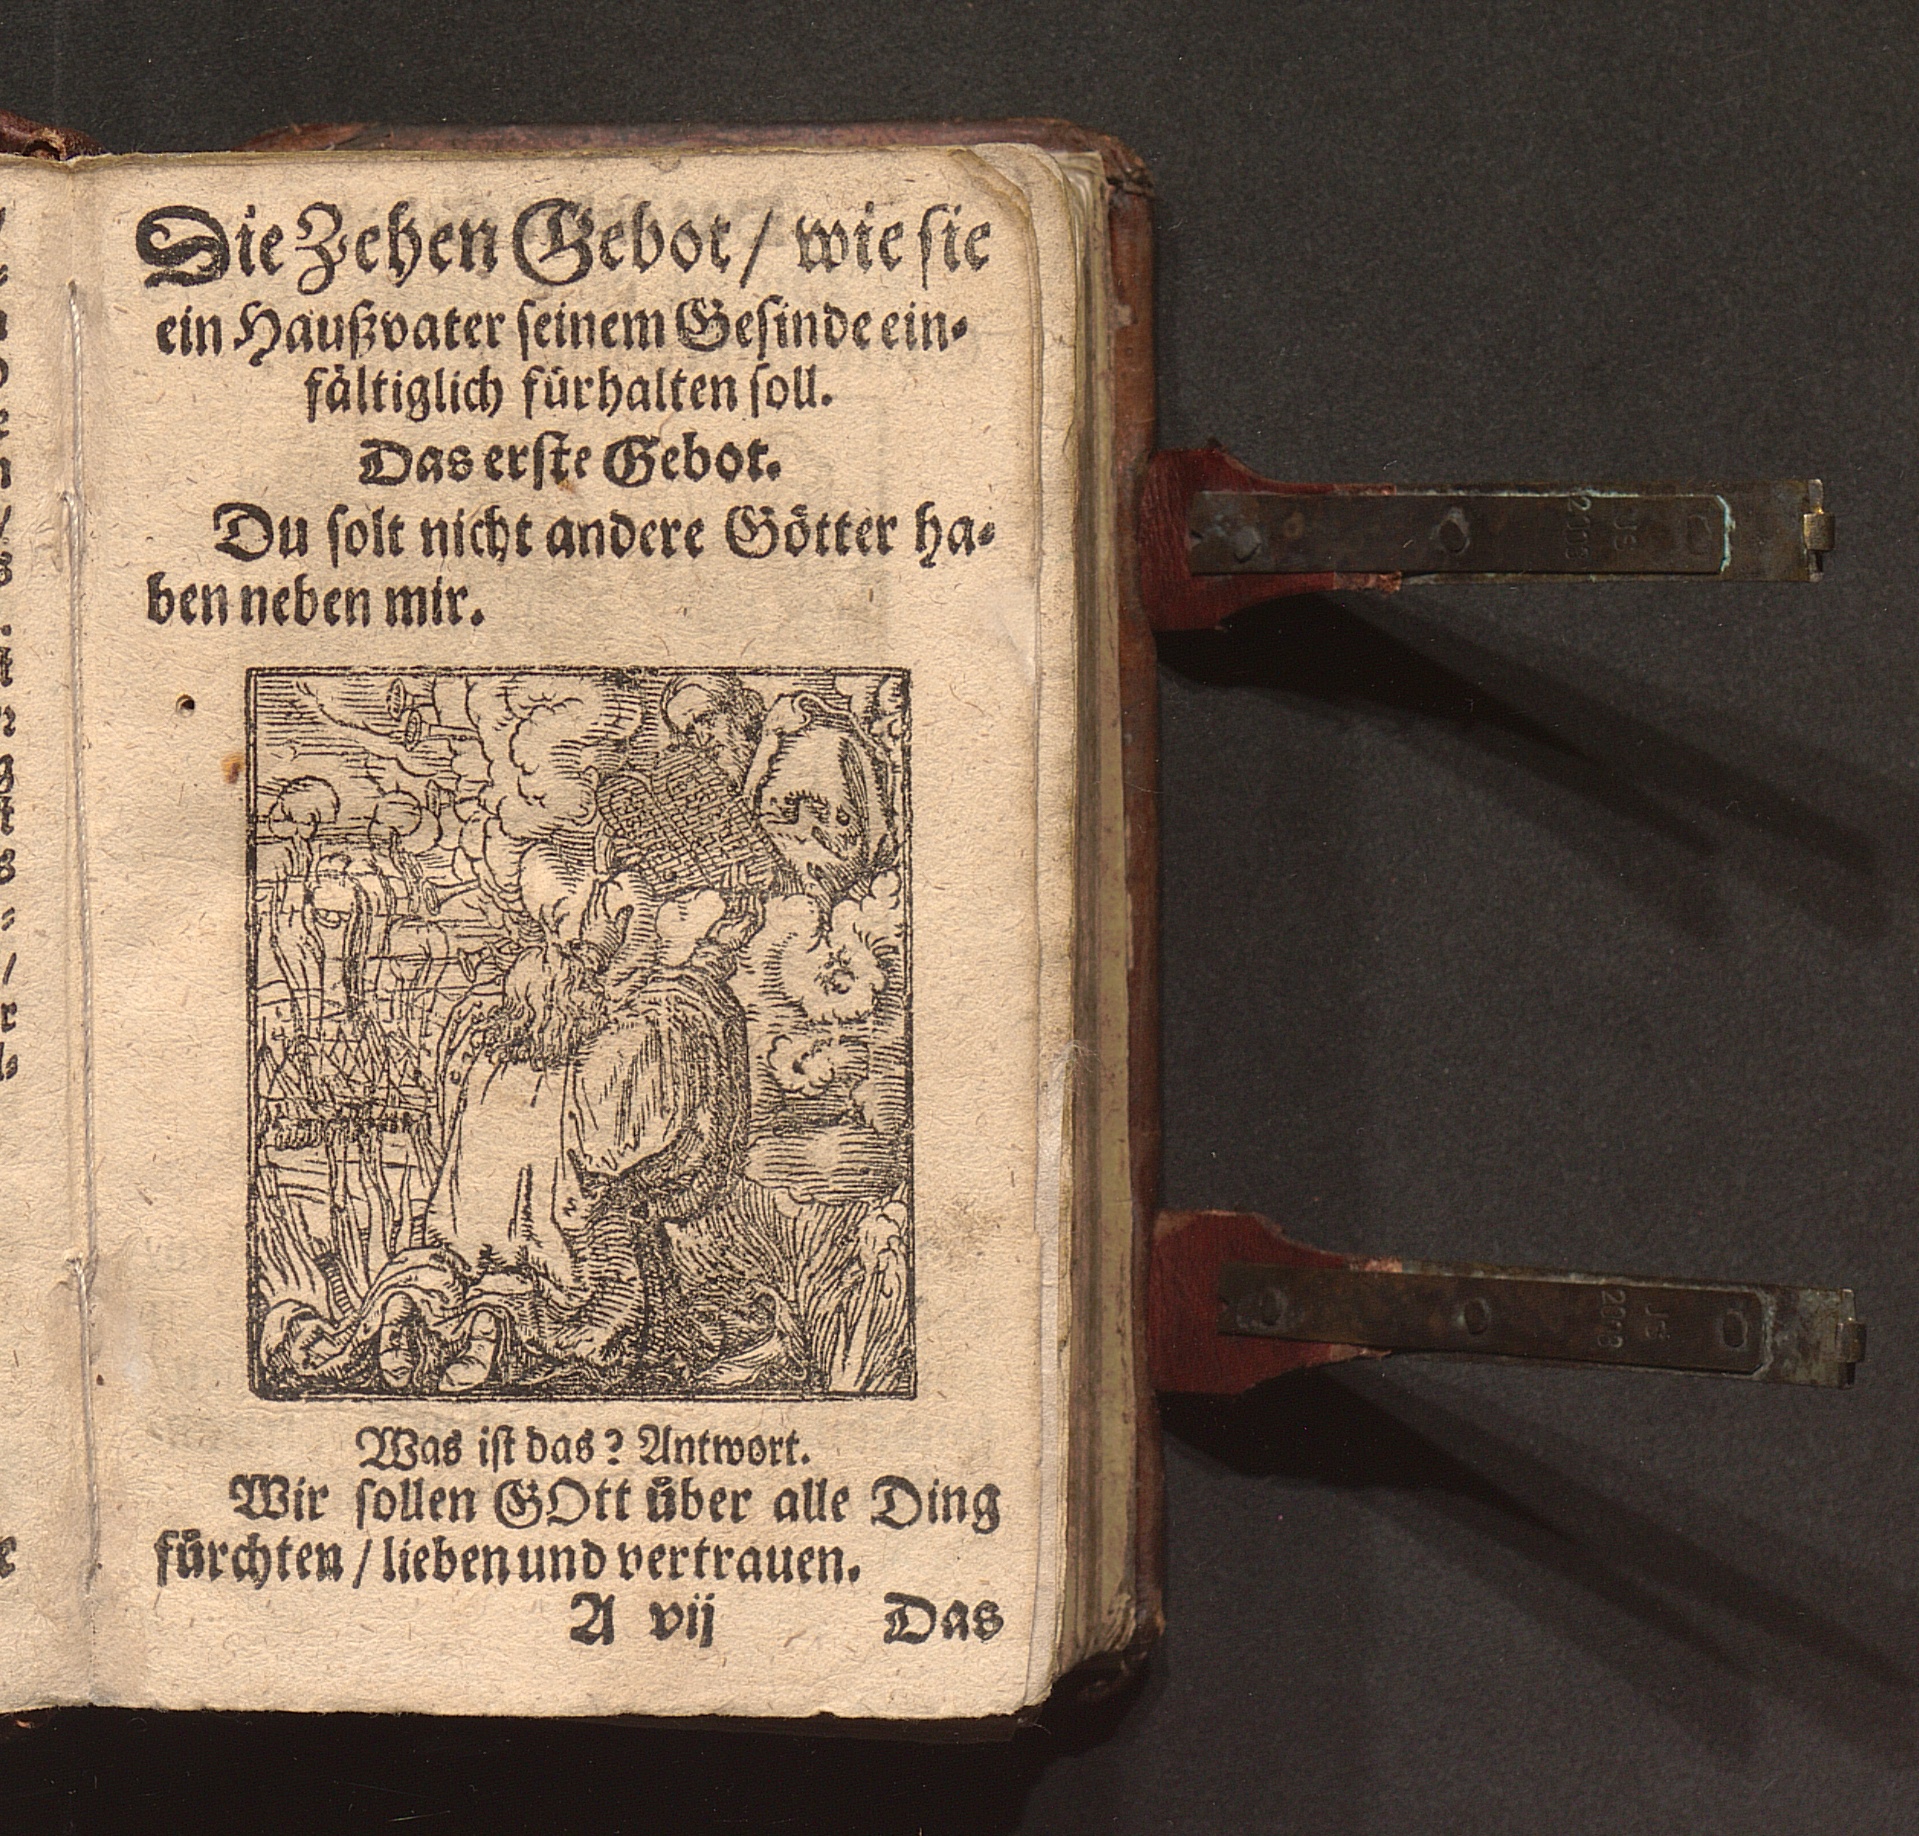 Die Zehen Gebot / wie sie
ein Haußvater seinem Gesinde ein⸗
fältiglich fürhalten soll.
Das erste Gebot.
Du solt nicht andere Götter ha⸗
ben neben mir.
Was ist das? Antwort.
Wir sollen GOtt uͤber alle Ding
fuͤrchten / lieben und vertrauen.
A vij Das
JS
2008
JS
2008